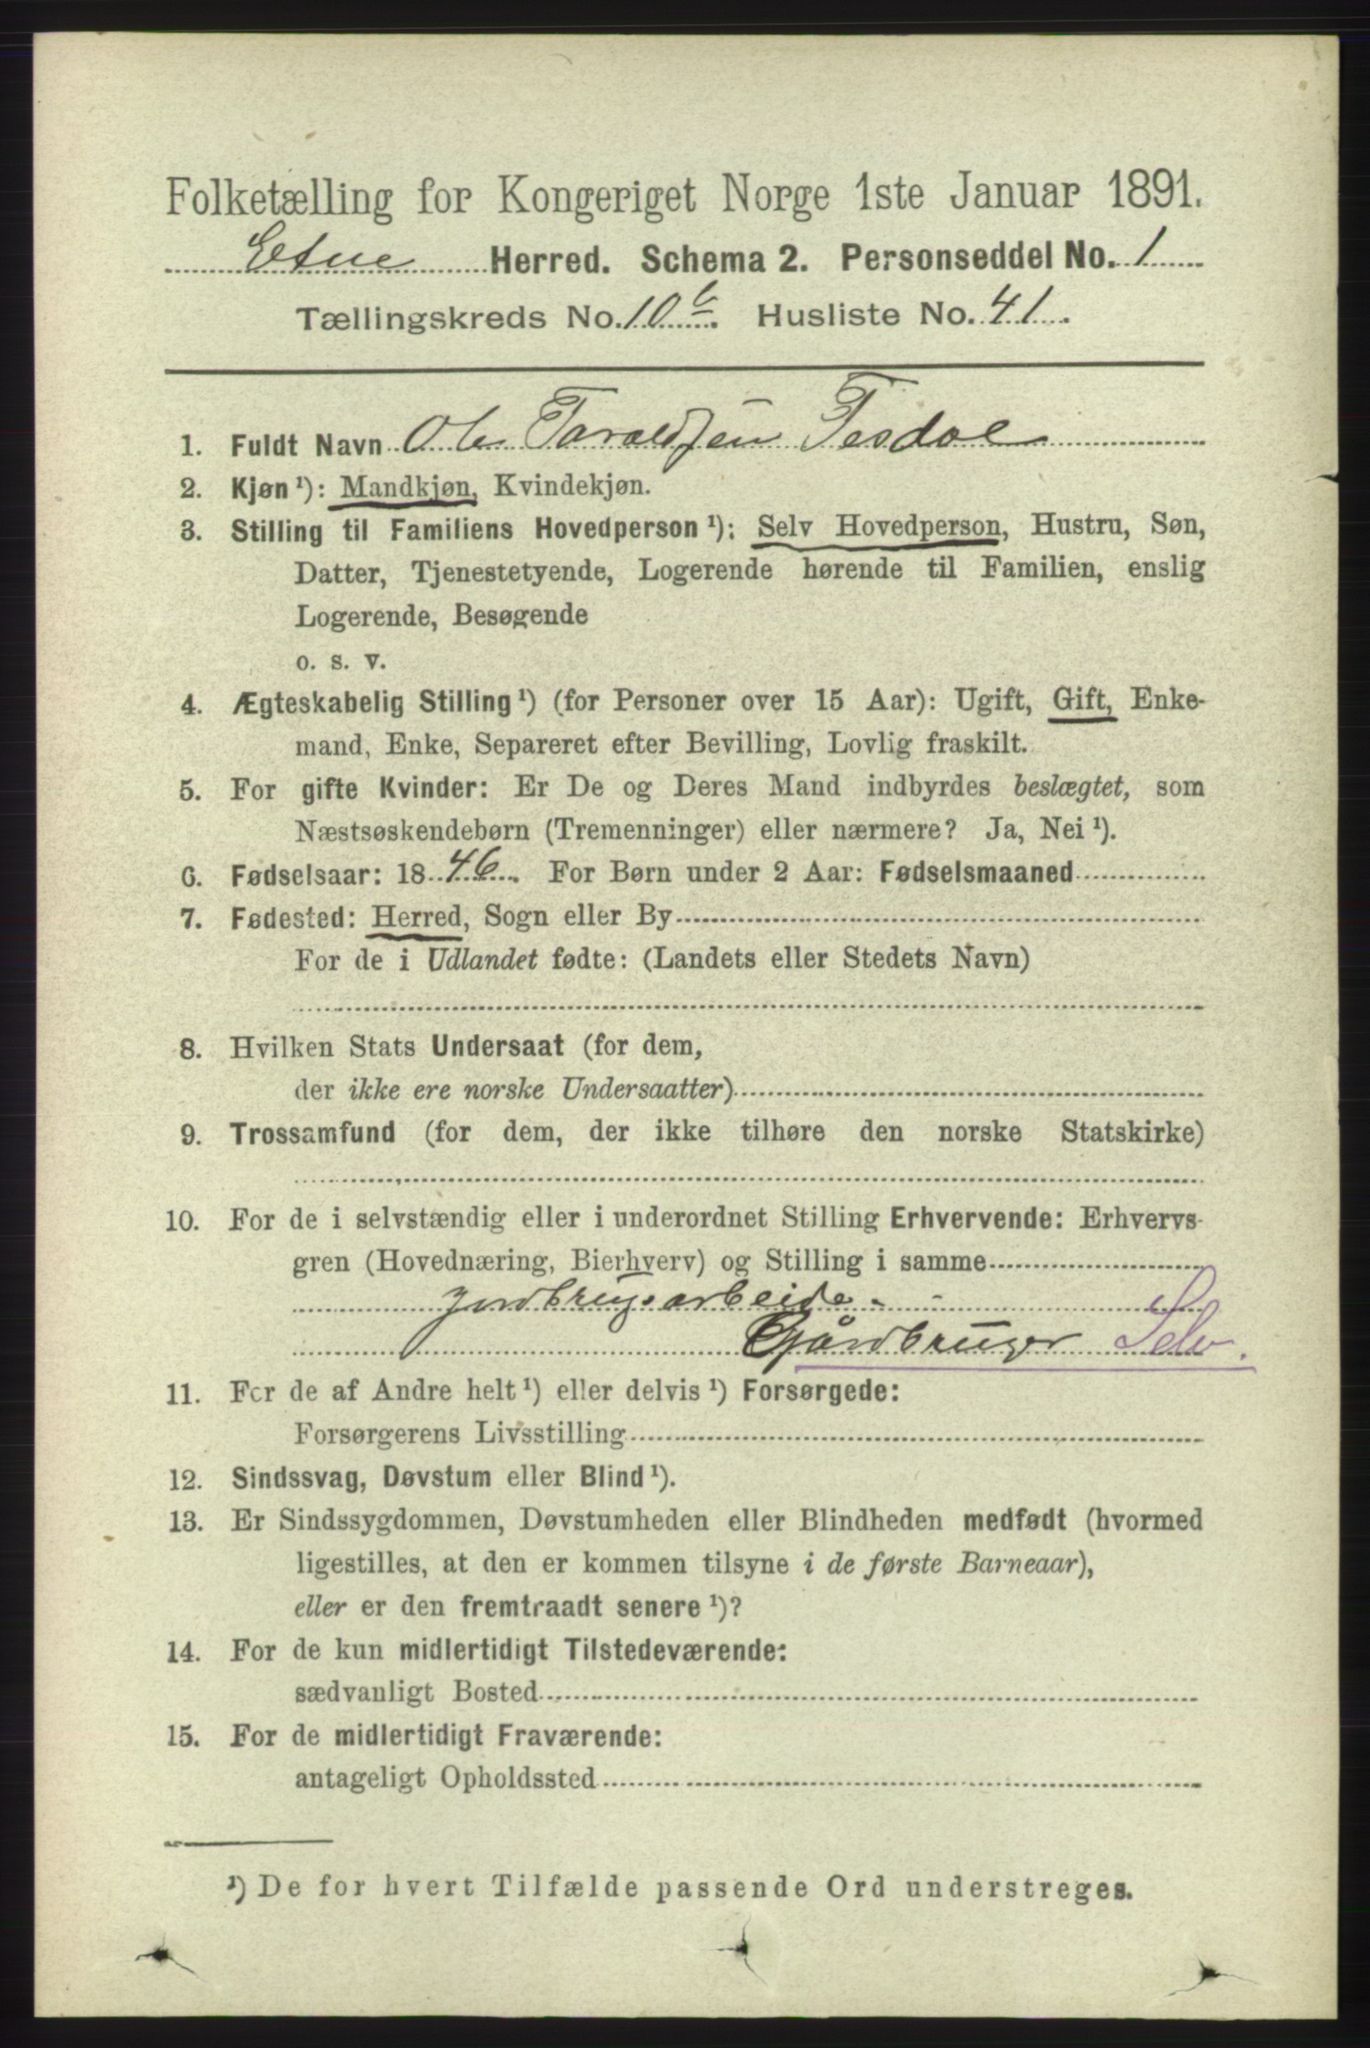 Folketælling for Kongeriget Norge 1ste Januar 1891.
Etne Herred. Schema 2. Personseddel No. 1
Tællingskreds No. 10 b. Husliste No. 41.
1. Fuldt Navn Ole Taraldsen Tesdal
2. Kjøn ¹): Mandkjøn, Kvindekjøn.
3. Stilling til Familiens Hovedperson ¹): Selv Hovedperson, Hustru, Søn,
Datter, Tjenestetyende, Logerende hørende til Familien, enslig
Logerende, Besøgende
o. s. v.
4. Ægteskabelig Stilling ¹) (for Personer over 15 Aar): Ugift, Gift, Enke-
mand, Enke, Separeret efter Bevilling, Lovlig fraskilt.
5. For gifte Kvinder: Er De og Deres Mand indbyrdes beslægtet, som
Næstsøskendebørn (Tremenninger) eller nærmere? Ja, Nei ¹).
6. Fødselsaar: 1846. For Børn under 2 Aar: Fødselsmaaned
7. Fødested: Herred, Sogn eller By
For de i Udlandet fødte: (Landets eller Stedets Navn)
8. Hvilken Stats Undersaat (for dem,
der ikke ere norske Undersaatter)
9. Trossamfund (for dem, der ikke tilhøre den norske Statskirke)
10. For de i selvstændig eller i underordnet Stilling Erhvervende: Erhvervs-
gren (Hovednæring, Bierhverv) og Stilling i samme
jordbrugsarbeide -
Gårdbruger Selv.
11. For de af Andre helt ¹) eller delvis ¹) Forsørgede:
Forsørgerens Livsstilling
12. Sindssvag, Døvstum eller Blind ¹).
13. Er Sindssygdommen, Døvstumheden eller Blindheden medfødt (hvormed
ligestilles, at den er kommen tilsyne i de første Barneaar),
eller er den fremtraadt senere ¹)?
14. For de kun midlertidigt Tilstedeværende:
sædvanligt Bosted
15. For de midlertidigt Fraværende:
antageligt Opholdssted
¹) De for hvert Tilfælde passende Ord understreges.